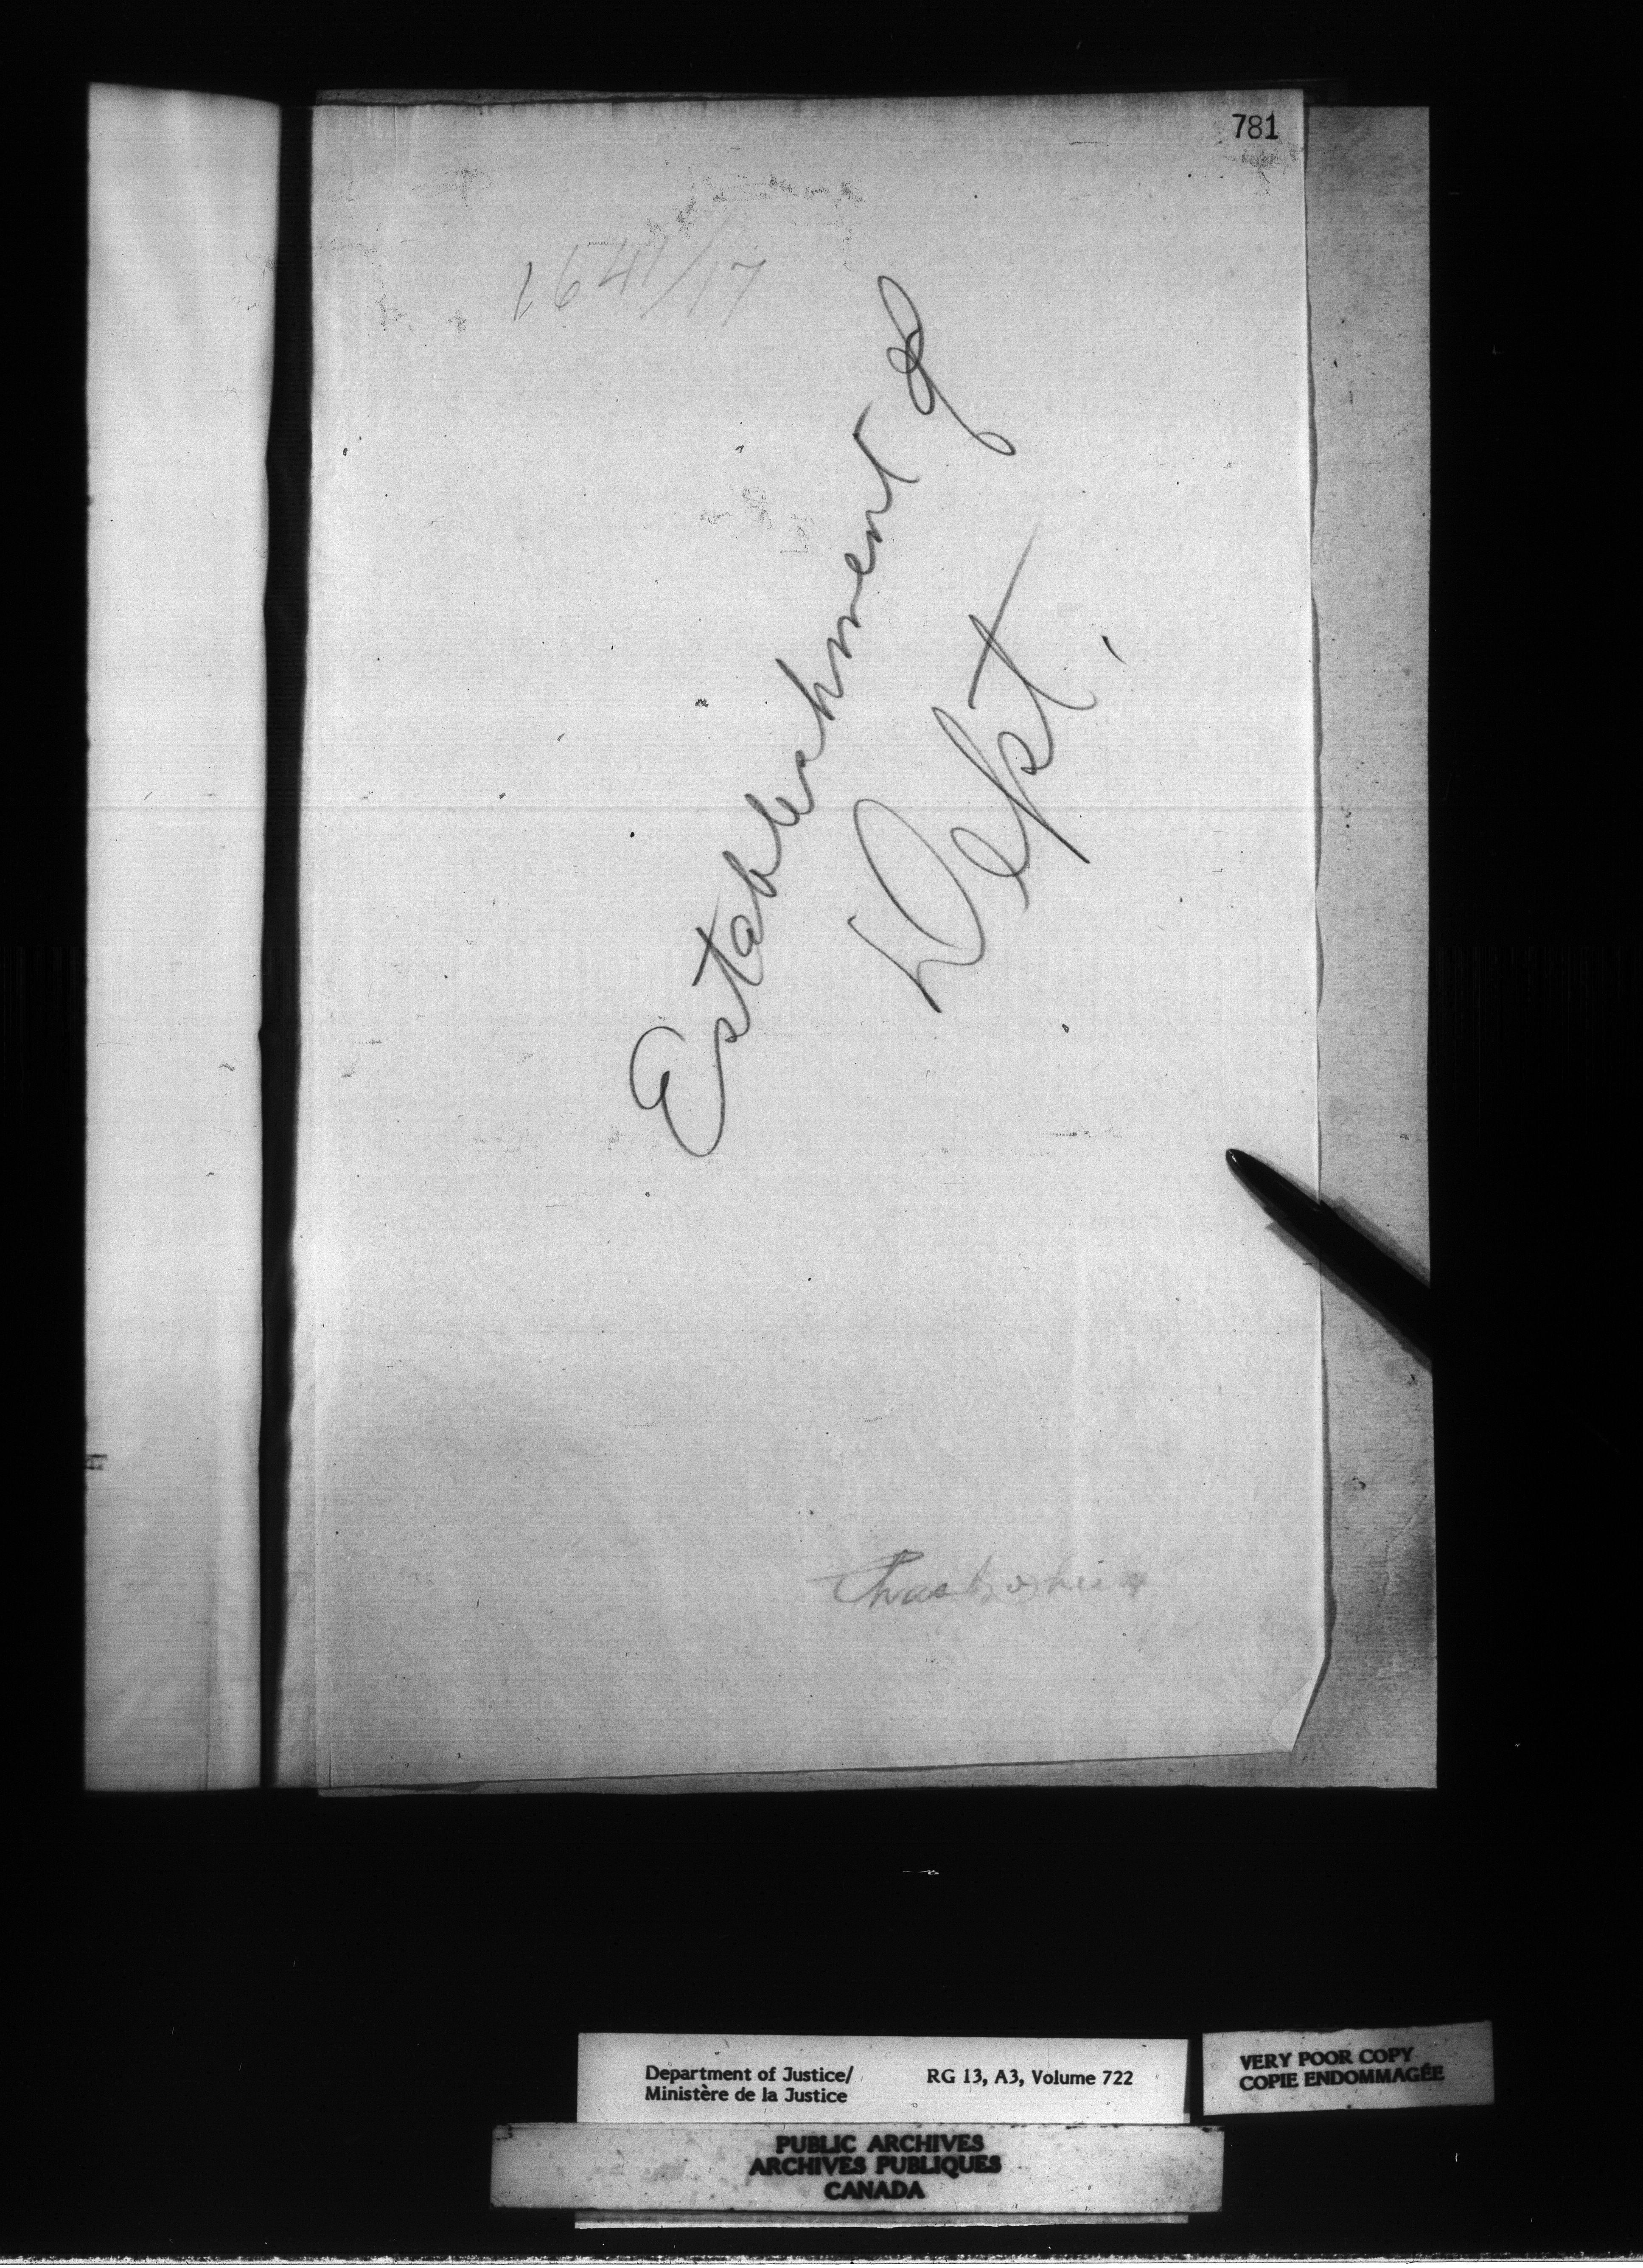 781
1641/17
Establishment of
Dept.
Department of Justice/
Ministère de la Justice
RG 13, A3, Volume 722
VERY POOR COPY
COPIE ENDOMMAGÉE
PUBLIC ARCHIVES
ARCHIVES PUBLIQUES
CANADA